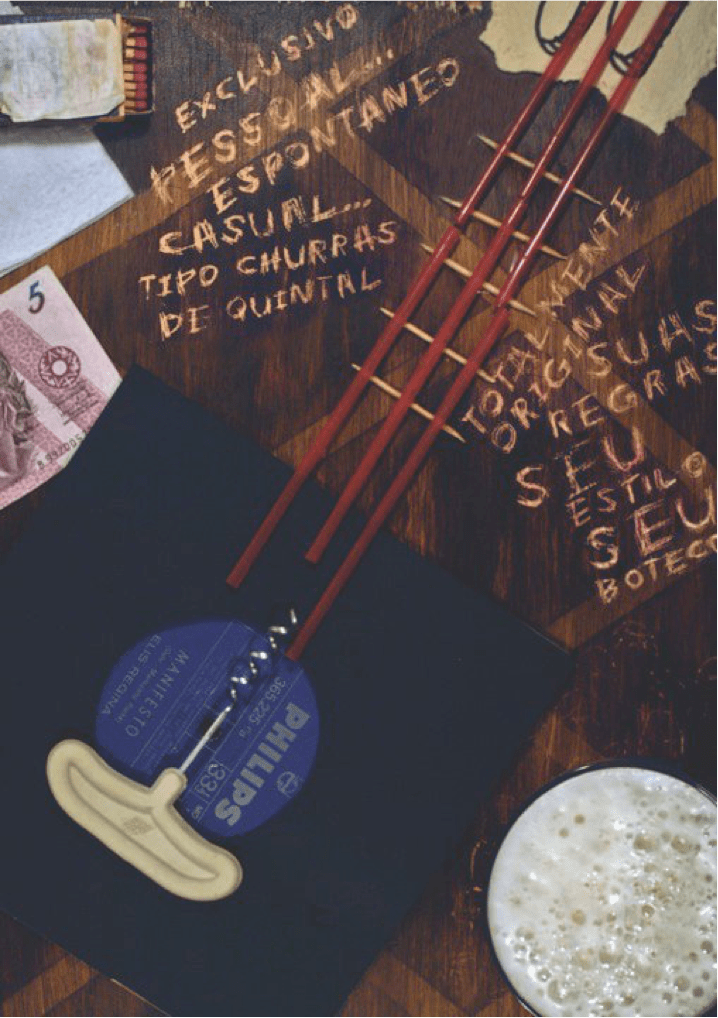 EXCLUSIVO
PESSOAL...
ESPONTANEO
CASUAL...
TIPO CHURRAS
DE QUINTAL
5
TOTALMENTE
ORIGINAL
SUAS
REGRAS
SEU
ESTILO
SEU
BOTECO
ELIS REGINA
MANIFESTO
365.225
PHILIPS
33